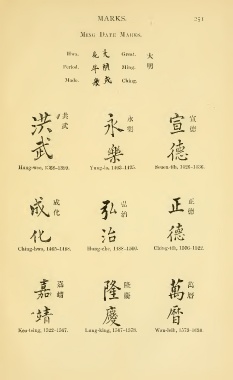 MARKS. 251
MING DATE MARKS.
Great. 大
Ming. 明
Made.
洪武 洪武
永樂
宣德 宣德
Yung-lo, 1403-1425.
Seuen-tih, 1426-1436.
成化 成化
弘治 弘治
正德 正德
Ching-hwa, 1465-1488.
Hung-che, 1488-1506.
Ching-tih, 1506-1522.
嘉靖 嘉靖
隆慶 隆慶
萬曆 萬曆
Kea-tsing, 1522-1567.
Lung-king, 1567-1573.
Wan-leih, 1573-1620.